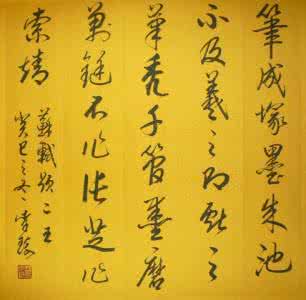 筆成塚墨成池
不及羲之即獻之
筆禿千管墨磨
萬鋌不作張芝作
索靖
蘇軾題二王
癸巳之冬